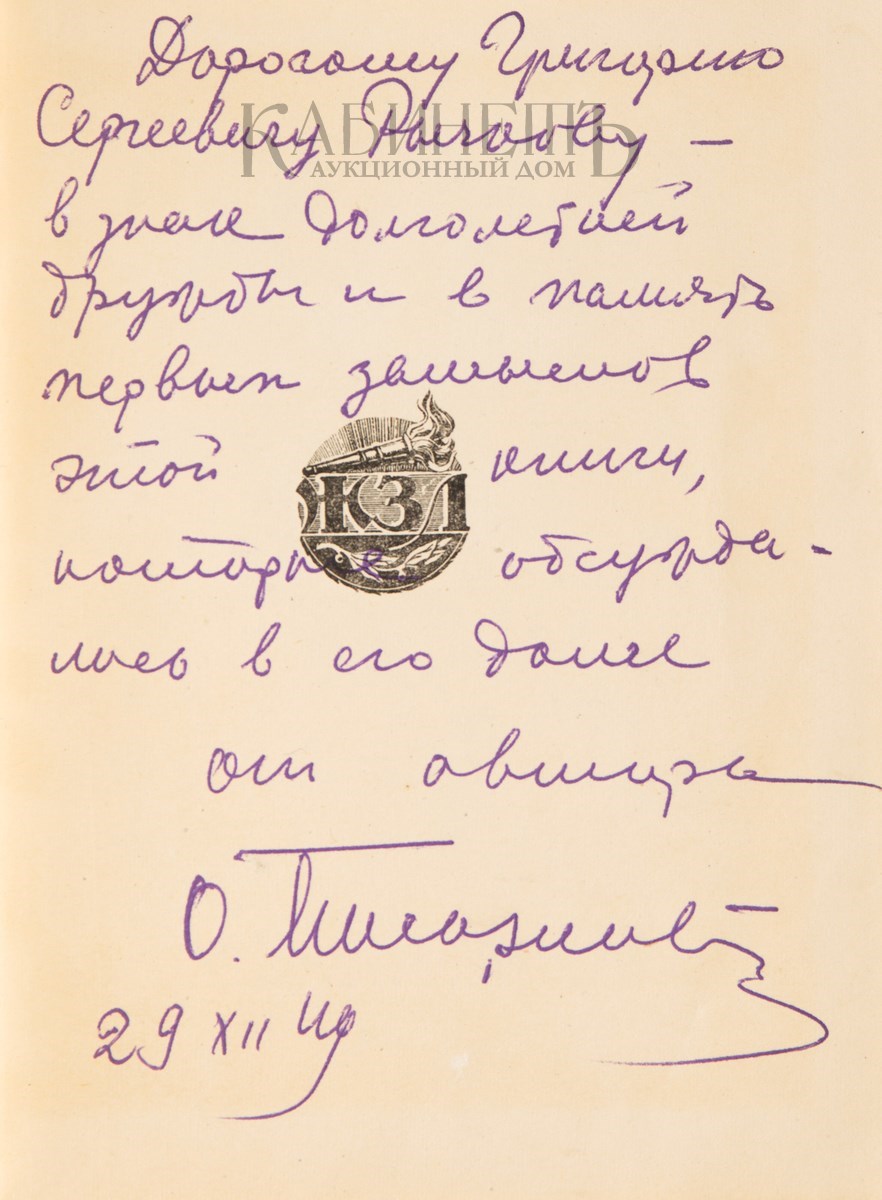 Дорогому Григорию
КАБИНЕТЪ
Сергеевичу —
АУКЦИОННЫЙ ДОМ
в знак долголетней
дружбы и в память
первых замыслов
этой книги,
ЖЗЛ
которые обсужда-
лись в его доме
от автора
О. Писаржевский
29 XII 49